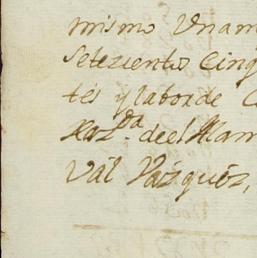 mismo Unam
setezientos Cinq
tés y labor de C
Haz.da de el Alam
Val Vázquéz,